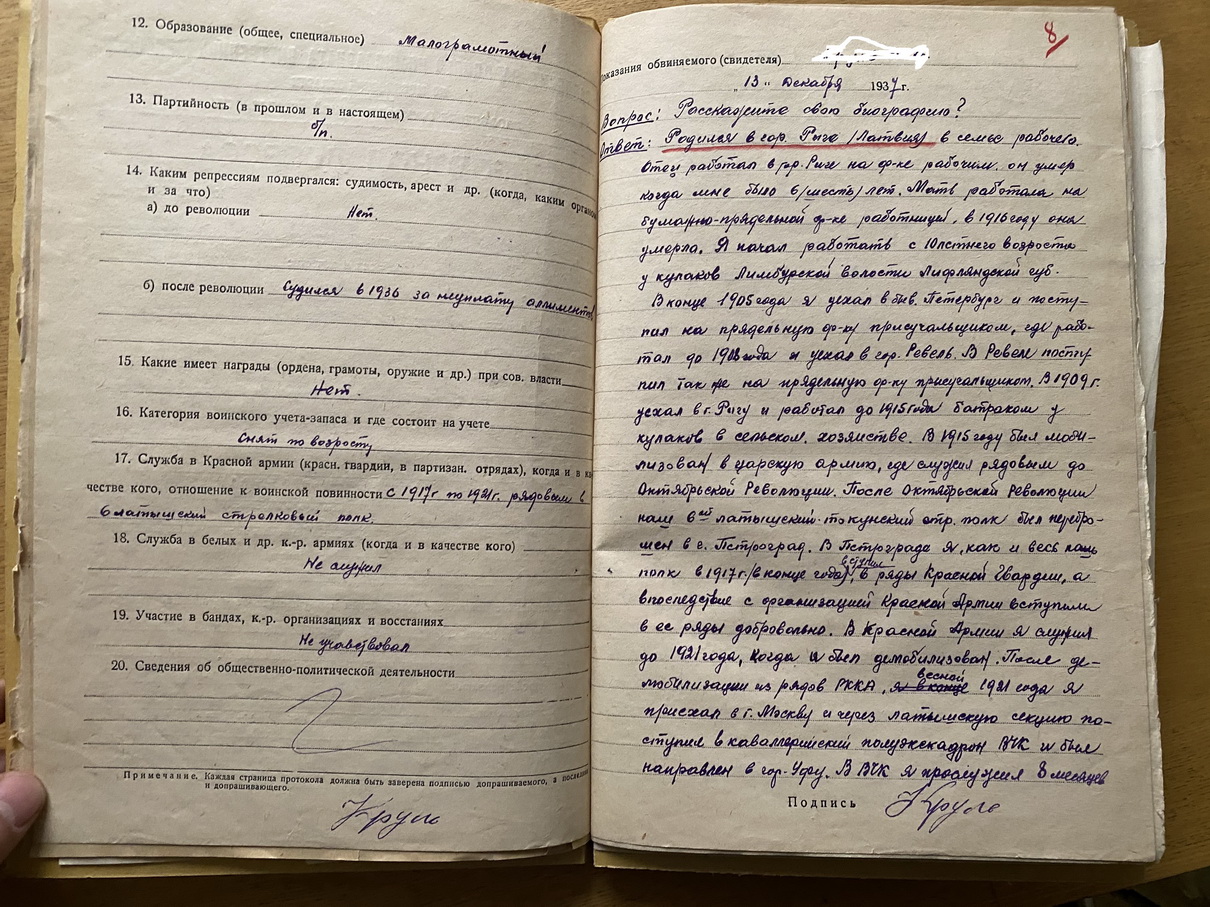 12. Образование (общее, специальное) Малограмотный
13. Партийность (в прошлом и в настоящем)
б/п.
14. Каким репрессиям подвергался: судимость, арест и др. (когда, каким органом
и за что)
а) до революции Нет.
б) после революции Судился в 1936 за неуплату алиментов
15. Какие имеет награды (ордена, грамоты, оружие и др.) при сов. власти
Нет.
16. Категория воинского учета-запаса и где состоит на учете
Снят по возрасту
17. Служба в Красной армии (красн. гвардии, в партизан. отрядах), когда и в ка
честве кого, отношение к воинской повинности с 1917г по 1921г. рядовым в
6 латышский стрелковый полк.
18. Служба в белых и др. к.-р. армиях (когда и в качестве кого)
Не служил
19. Участие в бандах, к.-р. организациях и восстаниях
Не учавствовал
20. Сведения об общественно-политической деятельности
Примечание. Каждая страница протокола должна быть заверена подписью допрашиваемого, а последняя
и допрашивающего.
8
Показания обвиняемого (свидетеля)
„13" декабря 1937 г.
Вопрос: Расскажите свою биографию?
Ответ: Родился в гор. Риге /Латвия/ в семье рабочего.
Отец работал в гор. Риге на ф-ке рабочим. он умер
когда мне было 6/шесть/ лет. Мать работала на
бумажно-прядельной ф-ке работницей, в 1916 году она
умерла. Я начал работать с 10 летнего возраста
у кулаков Лимбурской волости Лифляндской губ.
В конце 1905 года я уехал в быв. Петербург и посту-
пил на прядельную ф-ку присучальщиком, где рабо-
тал до 1908 года и уехал в гор. Ревель. В Ревеле посту
пил так же на прядельную ф-ку присучальщиком. В 1909 г.
уехал в г. Ригу и работал до 1915 года батраком у
кулаков в сельском. хозяйстве. В 1915 году был моби-
лизован в царскую армию, где служил рядовым до
Октябрьской Революции. После Октябрьской Революции
наш 6ой латышский-токунский стр. полк был перебро-
шен в г. Петроград. В Петрограде я, как и весь наш
полк в 1917 г. /в конце года/, вступил в ряды Красной Гвардии, а
впоследствие с организацией Красной Армии вступили
в ее ряды добровольно. В Красной Армии я служил
до 1921 года, когда и был демобилизован. После де-
мобилизации из рядов РККА, я в конце весной 1921 года я
приехал в г. Москву и через латышскую секцию по-
ступил в кавалерийский полуэскадрон ВЧК и был
направлен в гор. Уфу. В ВЧК я прослужил 8 месяцев
Подпись